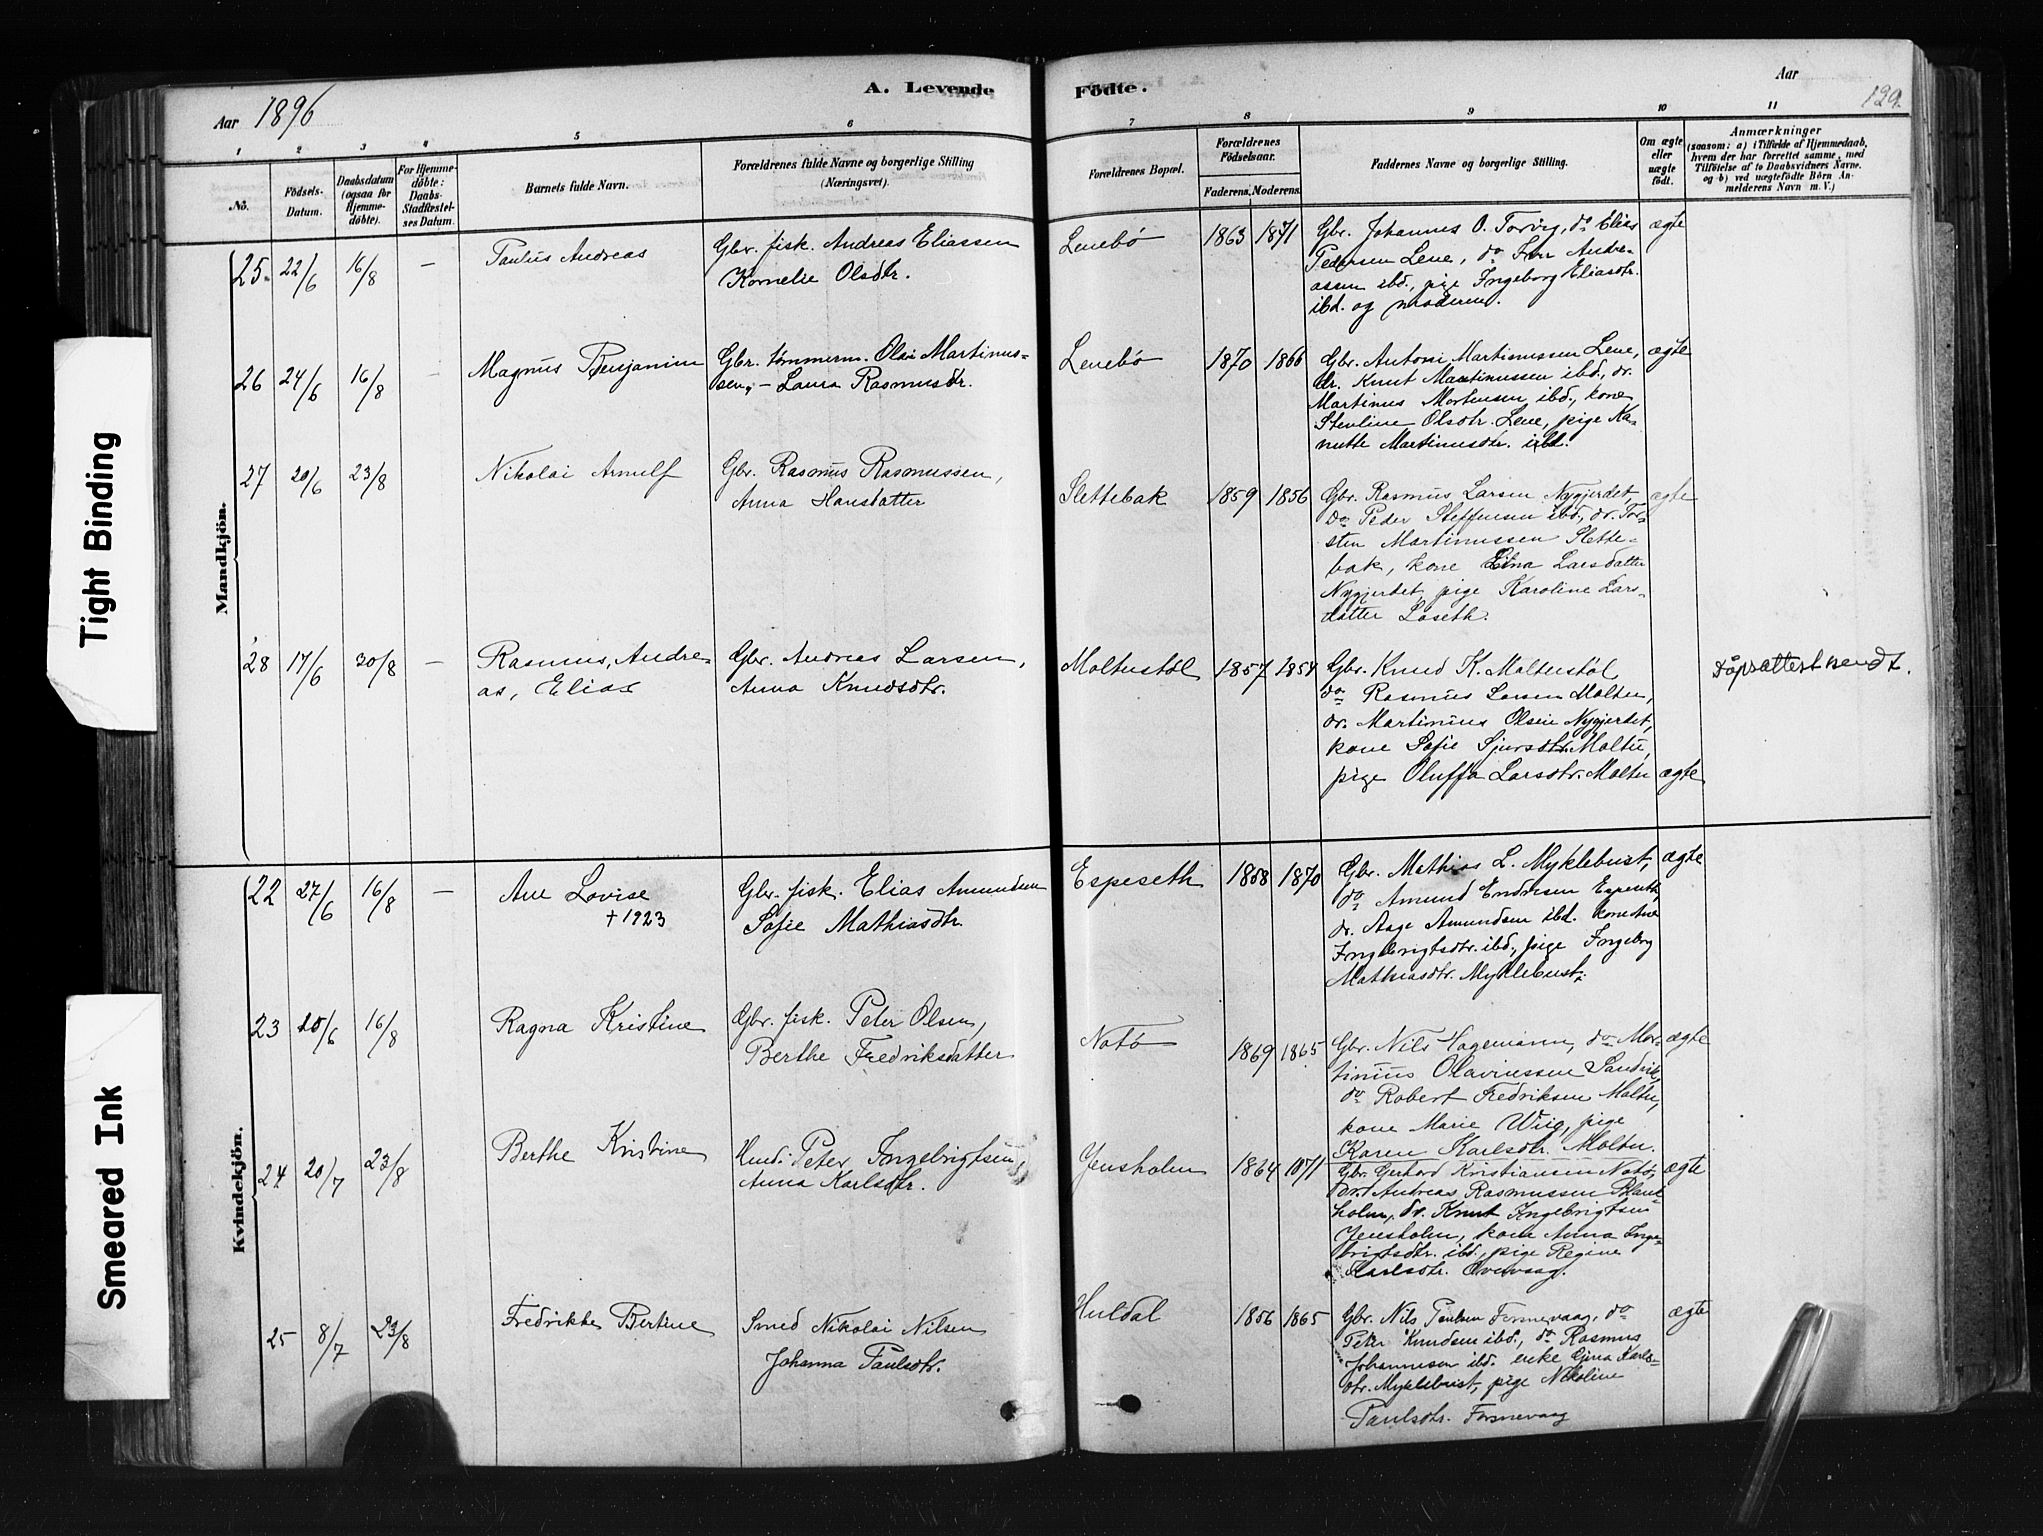 Tight Binding
Smeared Ink
Aar 1896
A. Levende Födte.
Aar
129.
1 2 3 4 5 6 7 8 9 10 11
No.
Födsels-Datum.
Daabsdatum (ogsaa for Hjemmedöbte).
For Hjemmedöbte: Daabs-Stadfæstelses Datum.
Barnets fulde Navn.
Forældrenes fulde Navne og borgerlige Stilling (Næringsvei).
Forældrenes Bopæl.
Forældrenes Födselsaar.
Faderens. Moderens.
Faddernes Navne og borgerlige Stilling.
Om ægte eller uægte födt.
Anmærkninger
(saasom: a) i Tilfælde af Hjemmedaab, hvem der har forrettet samme, med Tilföielse af to Daabsvidners Navne. og b) ved uægtefödte Börn Anmelderens Navn m. V.)
Mandkjön.
25. 22/6 16/8 — Paulus Andreas
Gbr. fisk. Andreas Eliassen
Kornelie Olsdtr.
Lenebö 1863 1871
Gbr. Johannes O. Torvig, do Elias
Pedersen Lene, do Iver Andre-
assen ibd., pige Ingeborg Eliasdtr.
ibd. og moderen.
ægte
26 24/6 16/8 — Magnus Benjamin
Gbr. tømmerm. Olai Martinus-
sen, – Laura Rasmusdr.
Lenebö 1870 1866
Gbr. Anton Martinussen Lene,
dr. Knut Martinussen ibd., dr.
Martinus Mortensen ibd., kone
Stenline Olsdtr. Lene, pige Ka-
nutte Martinusdtr. ibd.
ægte
27 20/6 23/8 Nikolai Arnulf
Gbr. Rasmus Rasmussen,
Anna Hansdatter
Slettebak 1859 1856
Gbr. Rasmus Larsen Nygjerdet,
do Peder Steffensen ibd., dr. Tor-
sten Martinussen Slette-
bak, kone Lina Larsdatter
Nygjerdet, pige Karoline Lars-
datter Løseth.
ægte
28 17/6 30/8 — Rasmus, Andre-
as, Elias
Gbr. Andreas Larsen,
Anna Knudsdtr.
Moltustøl 1857 1854
Gbr. Knud K. Moltustøl
do Rasmus Larsen Moltu,
dr. Martinius Olsen Nygjerdet,
kone Sofie Sjursdtr. Moltu,
pige Oluffa Larsdtr. Moltu
ægte
Dåpsattest sendt.
Kvindekjön.
22 27/6 16/8 — Ane Lovise
† 1923
Gbr. fisk. Elias Amundsen
Sofie Mathiasdtr.
Espeseth 1858 1870
Gbr. Mathias L. Myklebust,
do Amund Endresen Espeseth,
dr. Aage Amundsen ibd. kone Ane
Ingebrigtsdtr. ibd., pige Ingeborg
Mathiasdtr. Myklebust.
ægte
23 20/6 16/8 Ragna Kristine
Gbr. fisk. Peter Olsen,
Berthe Fredriksdatter
Notö 1869 1865
Gbr. Nils Hagemann, do Mar-
tinius Olavinussen Sandvik,
do Robert Fredriksen Moltu,
kone Marie Wiig, pige
Karen Karlsdtr. Moltu.
ægte
24 20/7 23/8 Berthe Kristine
Husm. Peter Ingebrigtsen,
Anna Karlsdtr.
Jensholm 1864 1871
Gbr. Gerhard Kristiansen Notö,
Andreas Rasmussen
holm, dr. Knut Ingebrigtsen
Jensholm, kone Anna Inge-
brigtsdtr. ibd., pige Regine
Karlsdtr.
ægte
25 8/7 23/8 Fredrikke Bertine
Smed Nikolai Nilsen
Johanna Paulsdtr.
Huldal 1856 1865
Gbr. Nils Paulsen Fosnevaag, do
Peter Knudsen ibd., do Rasmus
Johannesen ibd. enke Karls-
dtr. Myklebust, pige Nikoline
Paulsdtr. Fosnevaag
ægte